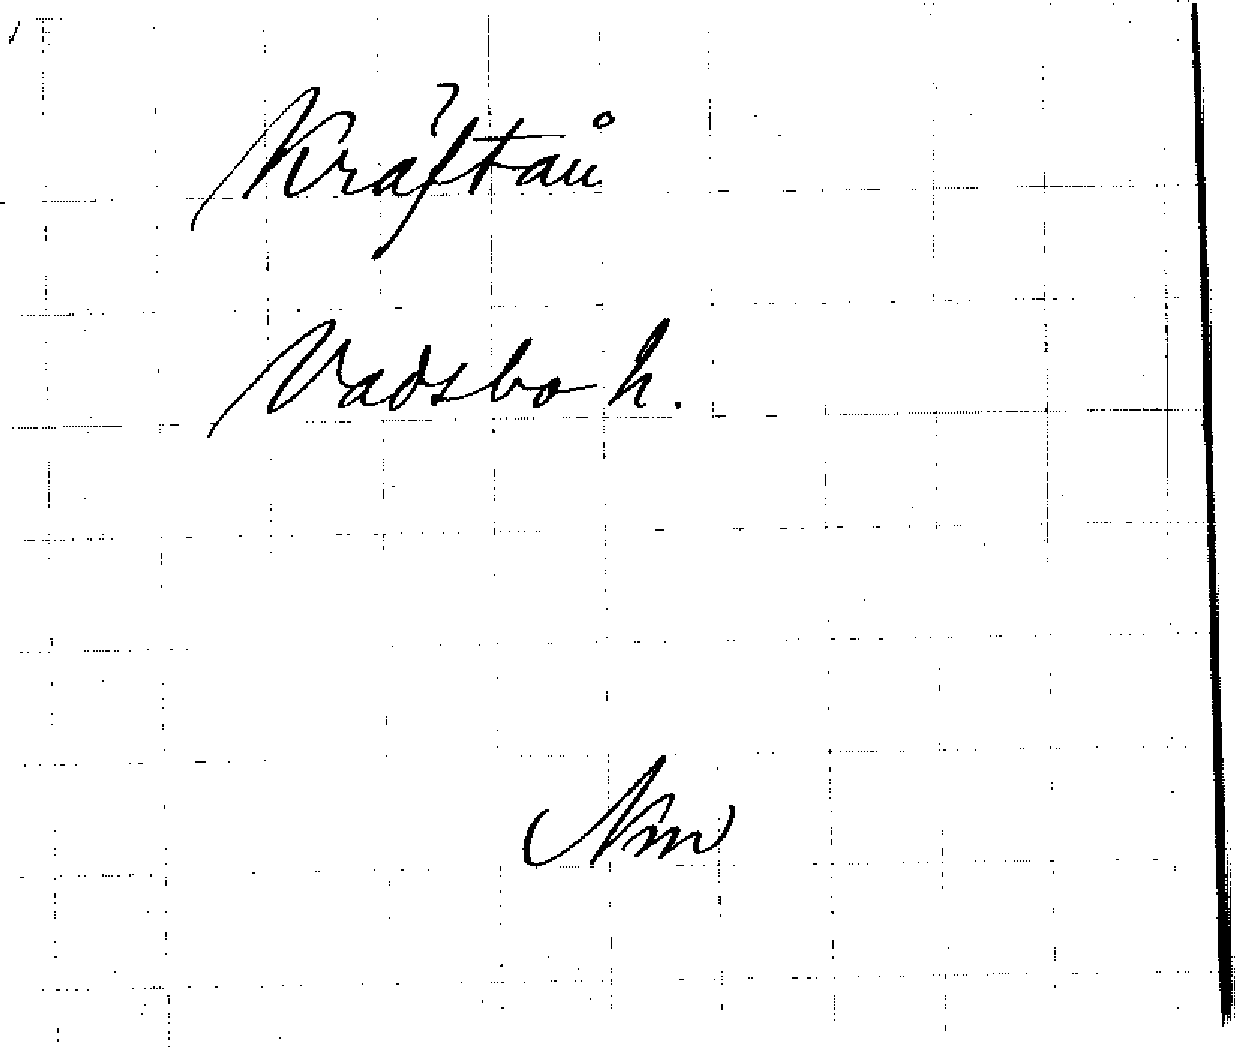 Kräftån
Vadsbo h.
(Nm)